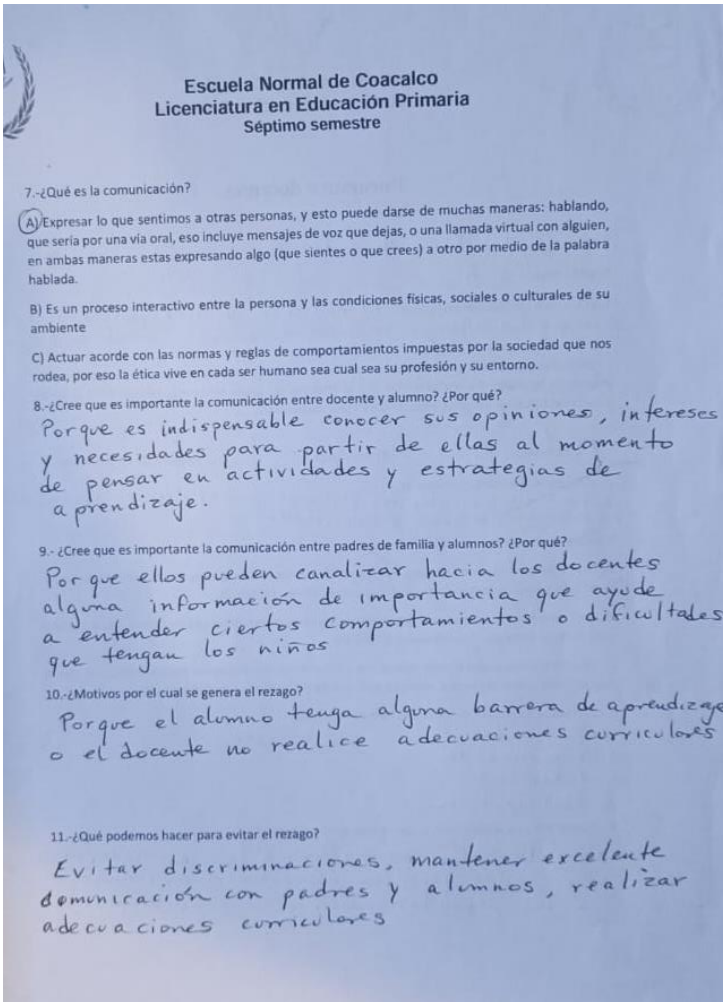 Escuela Normal de Coacalco
Licenciatura en Educación Primaria
Séptimo semestre
7.-¿Qué es la comunicación?
A) Expresar lo que sentimos a otras personas, y esto puede darse de muchas maneras: hablando,
que sería por una vía oral, eso incluye mensajes de voz que dejas, o una llamada virtual con alguien,
en ambas maneras estas expresando algo (que sientes o que crees) a otro por medio de la palabra
hablada.
B) Es un proceso interactivo entre la persona y las condiciones físicas, sociales o culturales de su
ambiente
C) Actuar acorde con las normas y reglas de comportamientos impuestas por la sociedad que nos
rodea, por eso la ética vive en cada ser humano sea cual sea su profesión y su entorno.
8.-¿Cree que es importante la comunicación entre docente y alumno? ¿Por qué?
Porque es indispensable conocer sus opiniones, intereses
y necesidades para partir de ellas al momento
de pensar en actividades y estrategias de
aprendizaje.
9.- ¿Cree que es importante la comunicación entre padres de familia y alumnos? ¿Por qué?
Por que ellos pueden canalizar hacia los docentes
alguna información de importancia que ayude
a entender ciertos comportamientos o dificultades
que tengan los niños
10.-¿Motivos por el cual se genera el rezago?
Porque el alumno tenga alguna barrera de aprendizaje
o el docente no realice adecuaciones curriculares
11.-¿Qué podemos hacer para evitar el rezago?
Evitar discriminaciones, mantener excelente
comunicación con padres y alumnos, realizar
adecuaciones curriculares